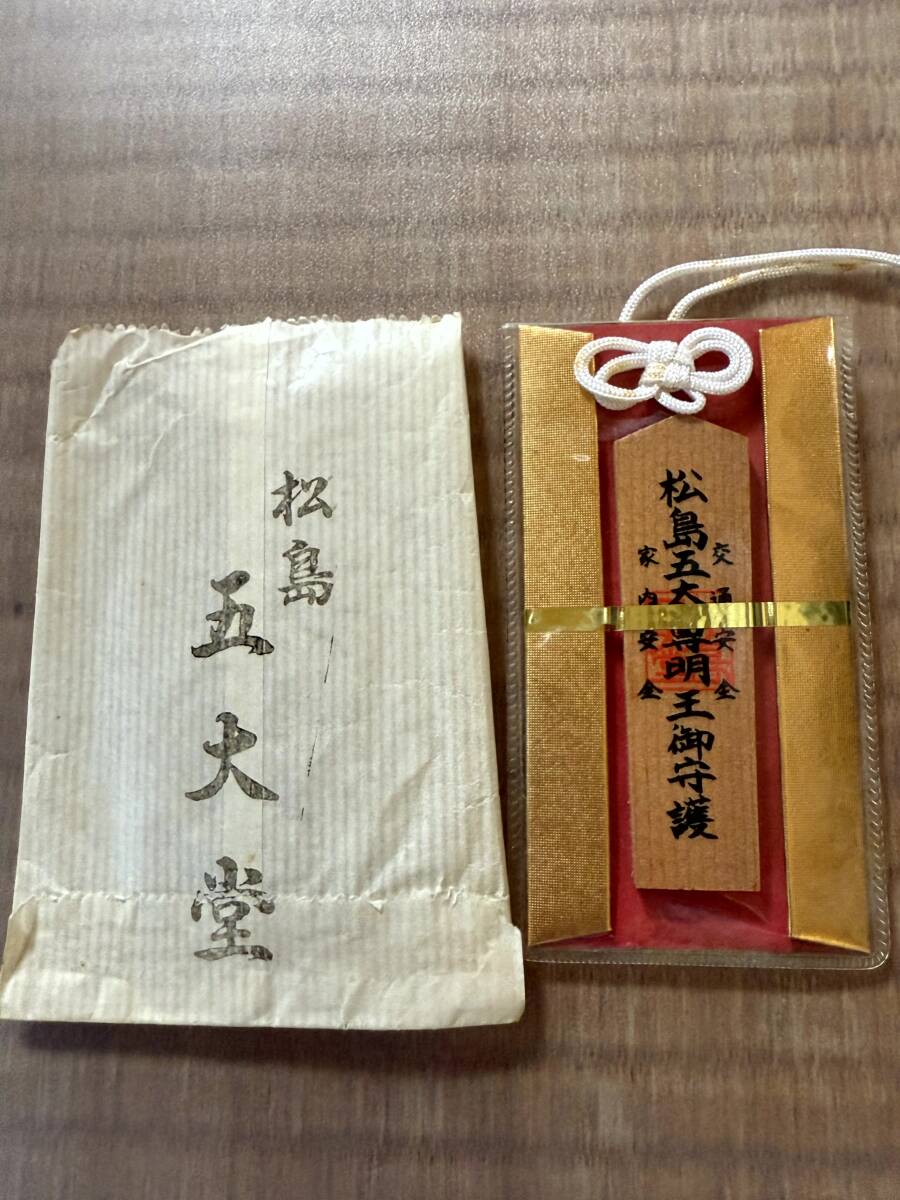 松島
五大堂
交通安全
松島五大尊明王御守護
家内安全